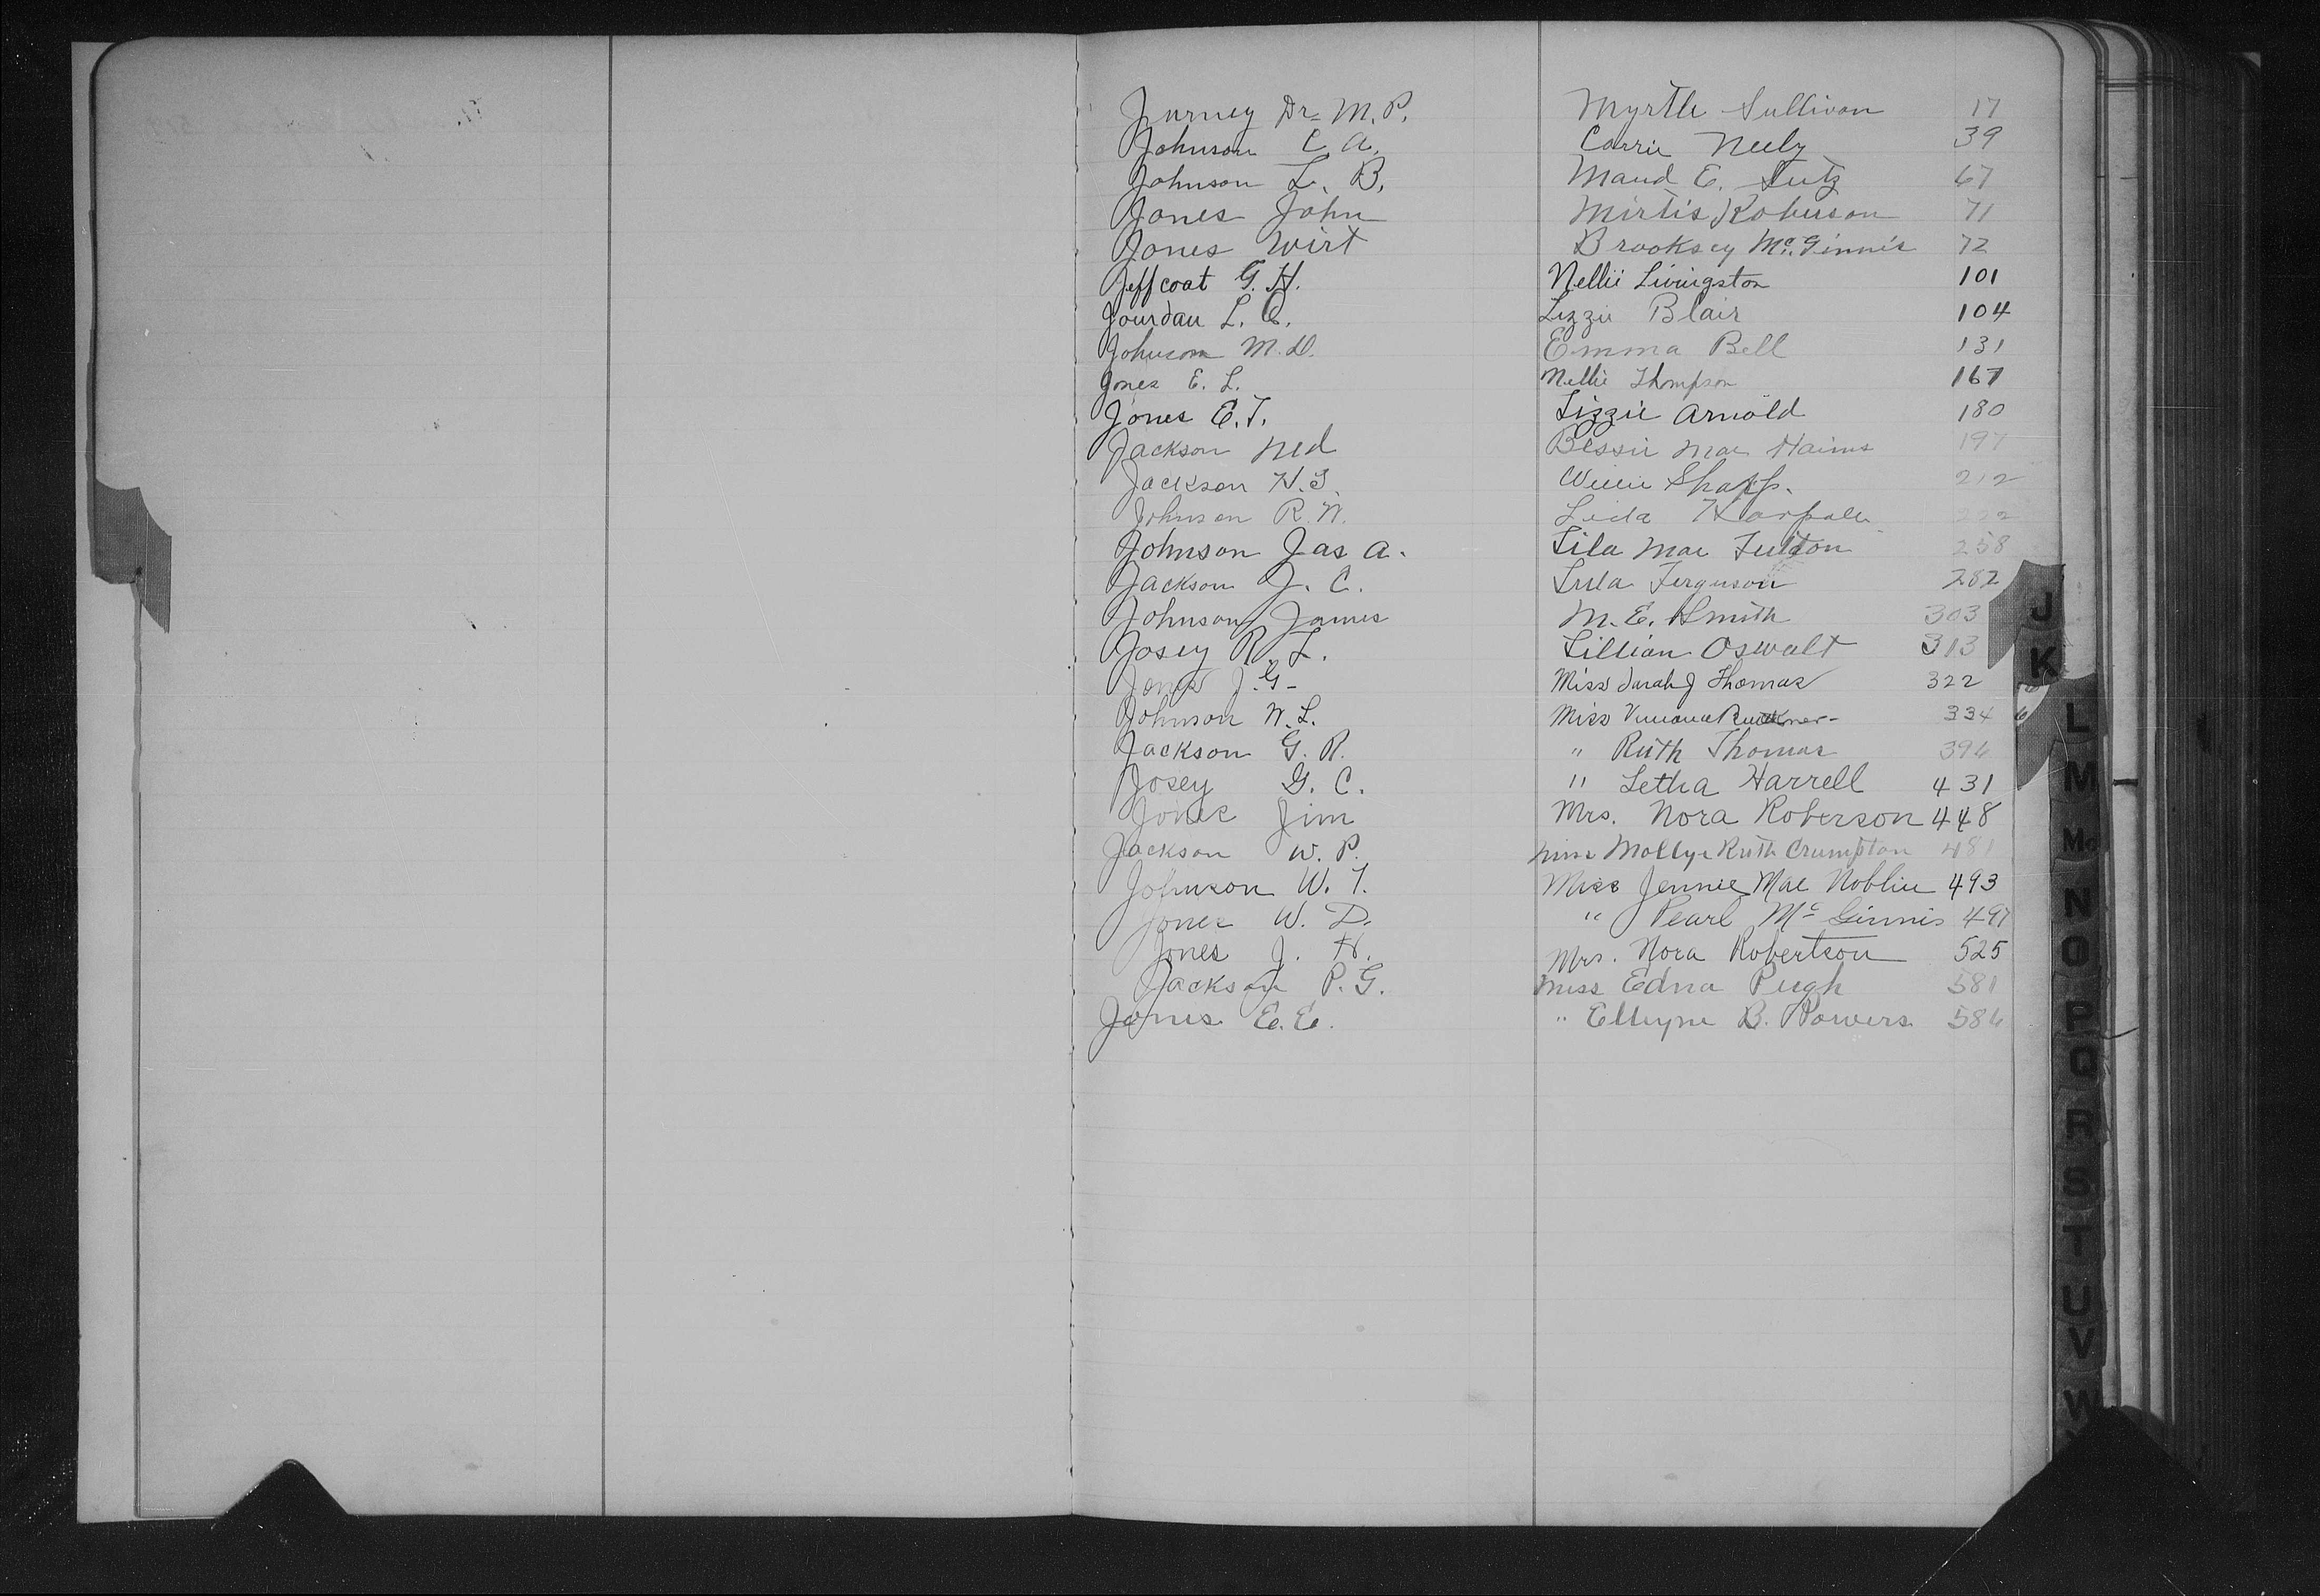 Jurney Dr= M.P. Myrtle Sullivan 17
Johnson C A. Carrie Neely 39
Johnson L. B. Maud E. Lutz 67
Jones John Mirtis Roberson 71
Jones Wirt Brooksey Mc.Ginnis 72
Jeffcoat G. H. Nellie Livingston 101
Jourdan L. Q. Lizzie Blair 104
Johnson M. D. Emma Bell 131
Jones E. L. Nellie Thompson 167
Jones E. T. Lizzie Arnold 180
Jackson Ned Bessie Mae Haims 197
Jackson H. S. Willie Sharp.
212
Johnson R. N. Leila
Johnson Jas A. Lila Mae Fulton 258
Jackson J. C. Lula Ferguson 282
Johnson James M. E. Smith 303
Josey R. L. Lillian Oswalt 313
Jones J. G- Miss Sarah J Thomas 322
Johnson W. L. Miss 334
Jackson G. R. " Ruth Thomas 394
Josey G. C. " Letha Harrell 431
Jones Jim Mrs. Nora Roberson 448
Jackson W. P. Miss Mollye Ruth Crumpton 481
Johnson W. T. Miss Jennie Mae Noblin 493
Jones W. D. " Pearl Mc Ginnis 497
Jones J. H. Mrs. Nora Robertson 525
Jackson P. G. Miss Edna Pugh 581
Jones E. E. " Elleyne B. Powers 586
J
K
L
M
Mc
N
O
P
Q
R
S
T
U
V
W